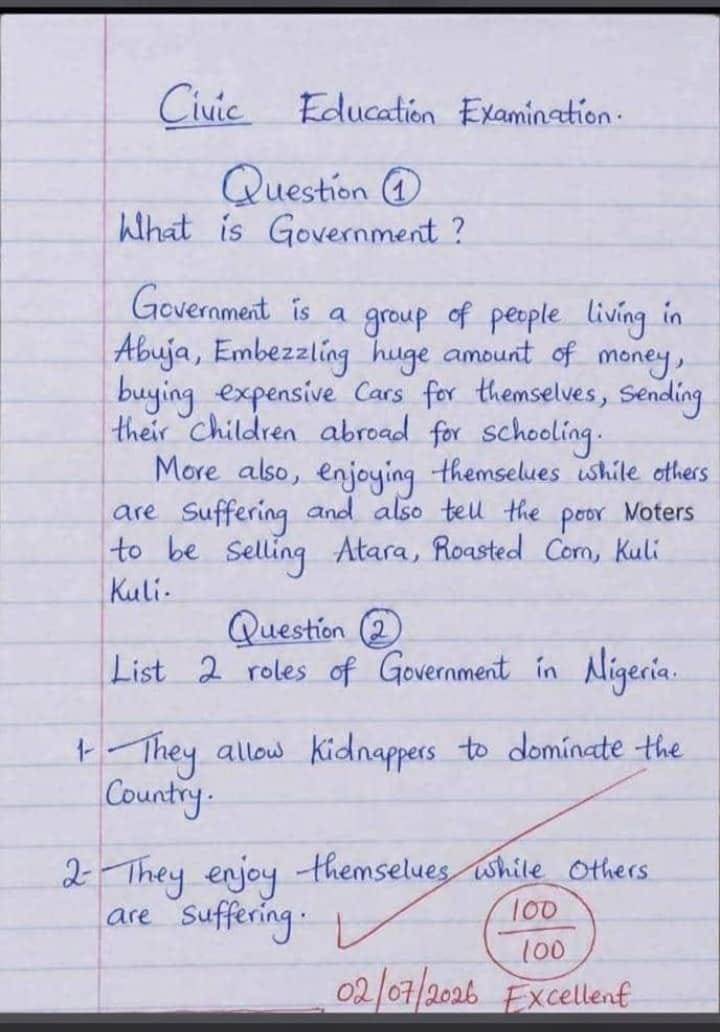 Civic Education Examination.
Question ①
What is Government?
Government is a group of people living in
Abuja, Embezzling huge amount of money,
buying expensive Cars for themselves, Sending
their Children abroad for schooling.
More also, enjoying themselves while others
are Suffering and also tell the poor Voters
to be Selling Atara, Roasted Corn, Kuli
Kuli.
Question ②
List 2 roles of Government in Nigeria.
1- They allow kidnappers to dominate the
Country.
2- They enjoy themselves while Others
are Suffering.
100
100
02/07/2026 Excellent